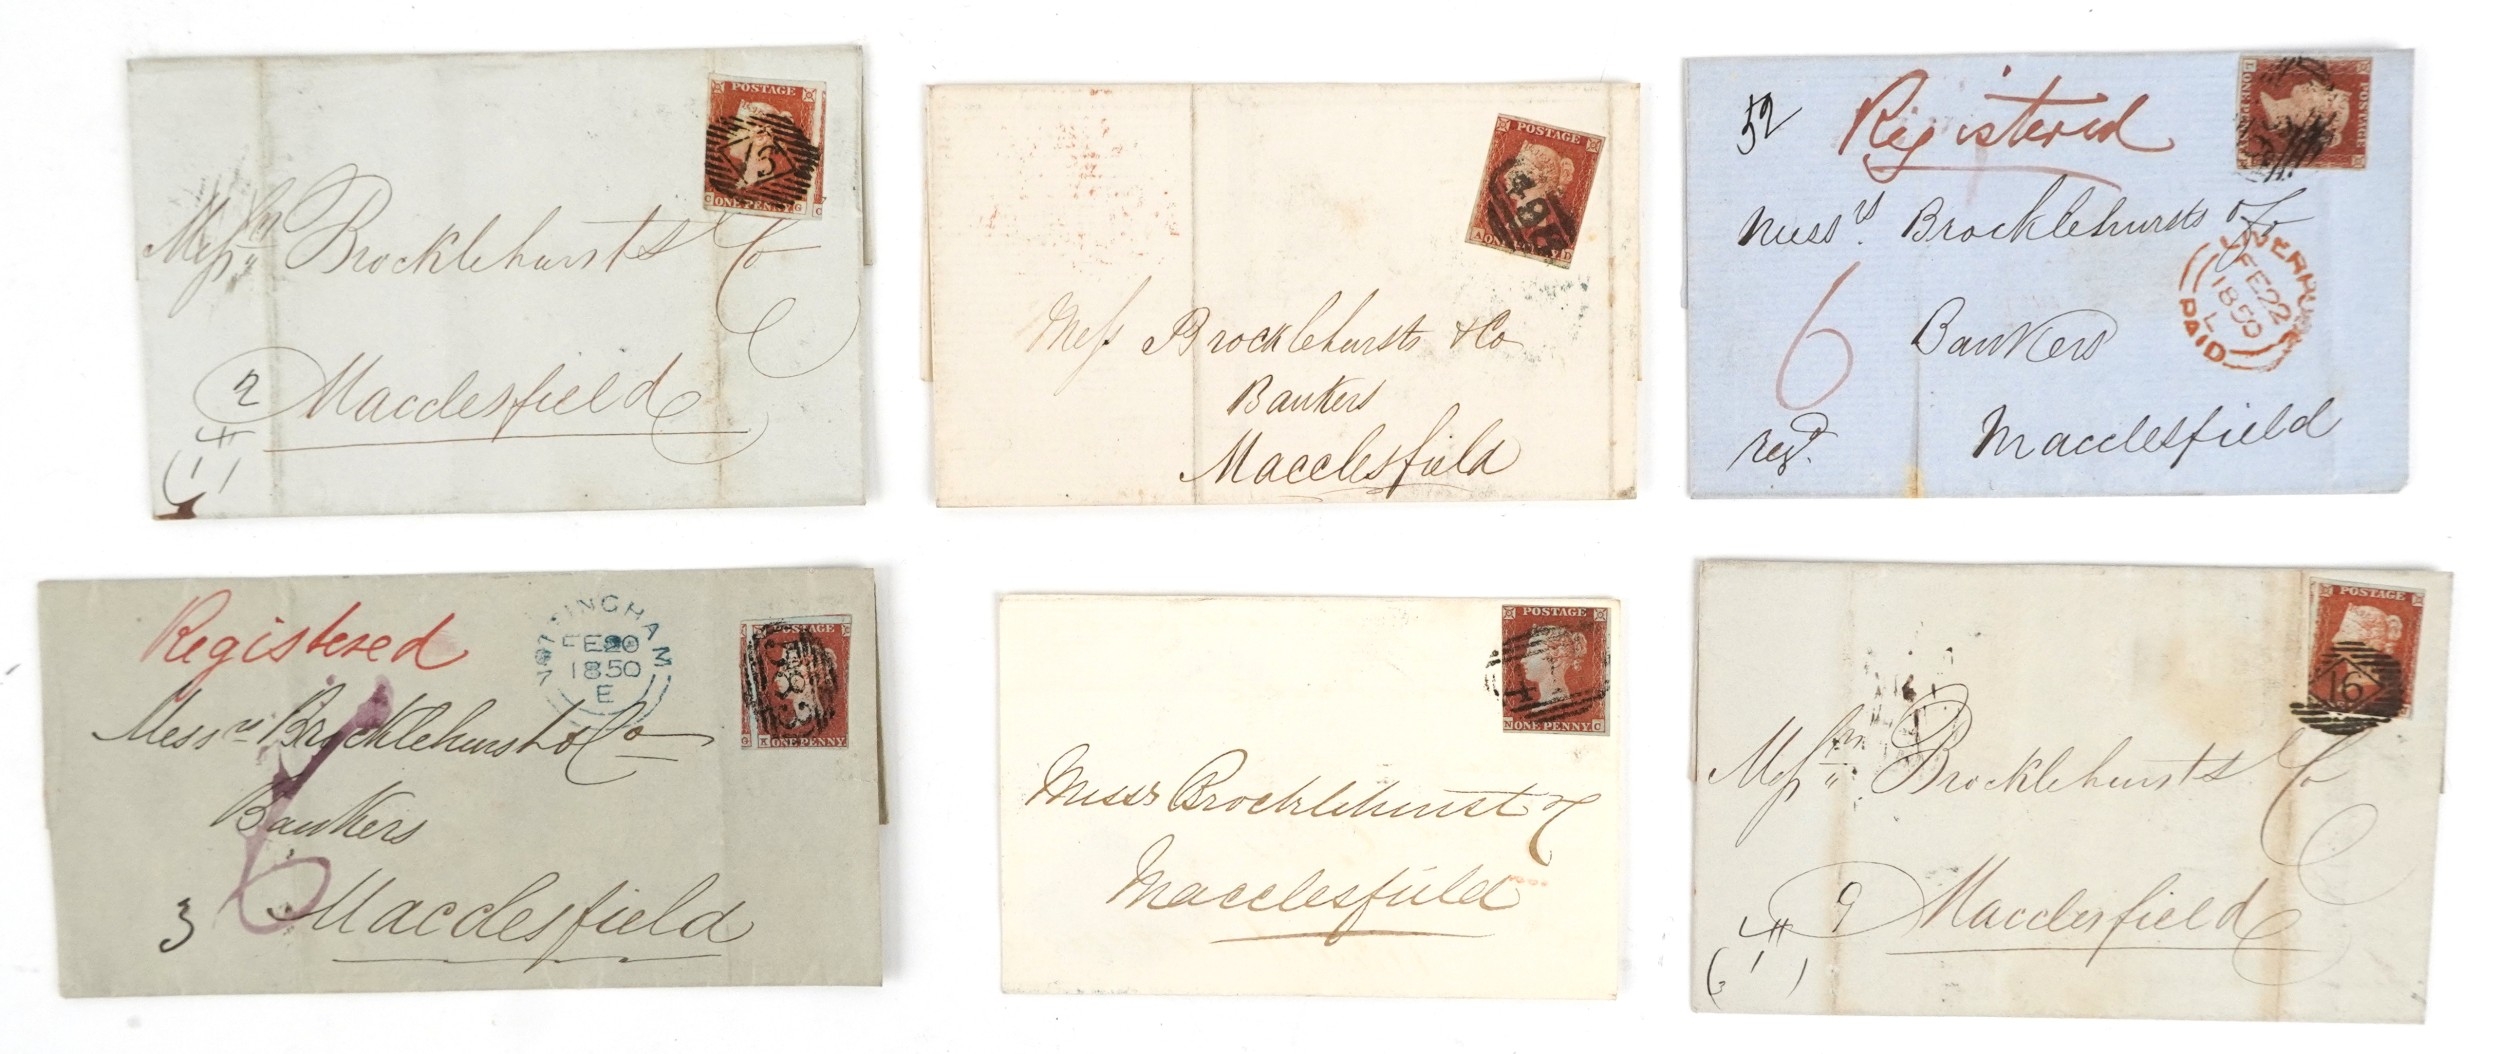 POSTAGE
13
C ONE PENNY G
C
Messrs Brocklehursts & Co
2 Macclesfield
1
POSTAGE
484
A ONE PENNY D
Mess Brocklehursts & Co
Bankers
Macclesfield
52 Registered
POSTAGE
ONE PENNY
Messrs Brocklehursts & Co
LIVERPOOL
FE22
1850
L
PAID
6
Bankers
Regd. Macclesfield
Registered
NOTTINGHAM
FE20
1850
E
POSTAGE
583
G
K ONE PENNY
Messrs Brocklehurst & Co
Bankers
6
3 Macclesfield
POSTAGE
N ONE PENNY C
Messrs Brocklehurst & C
Macclesfield
POSTAGE
16
Messrs Brocklehursts & Co
9 Macclesfield
1